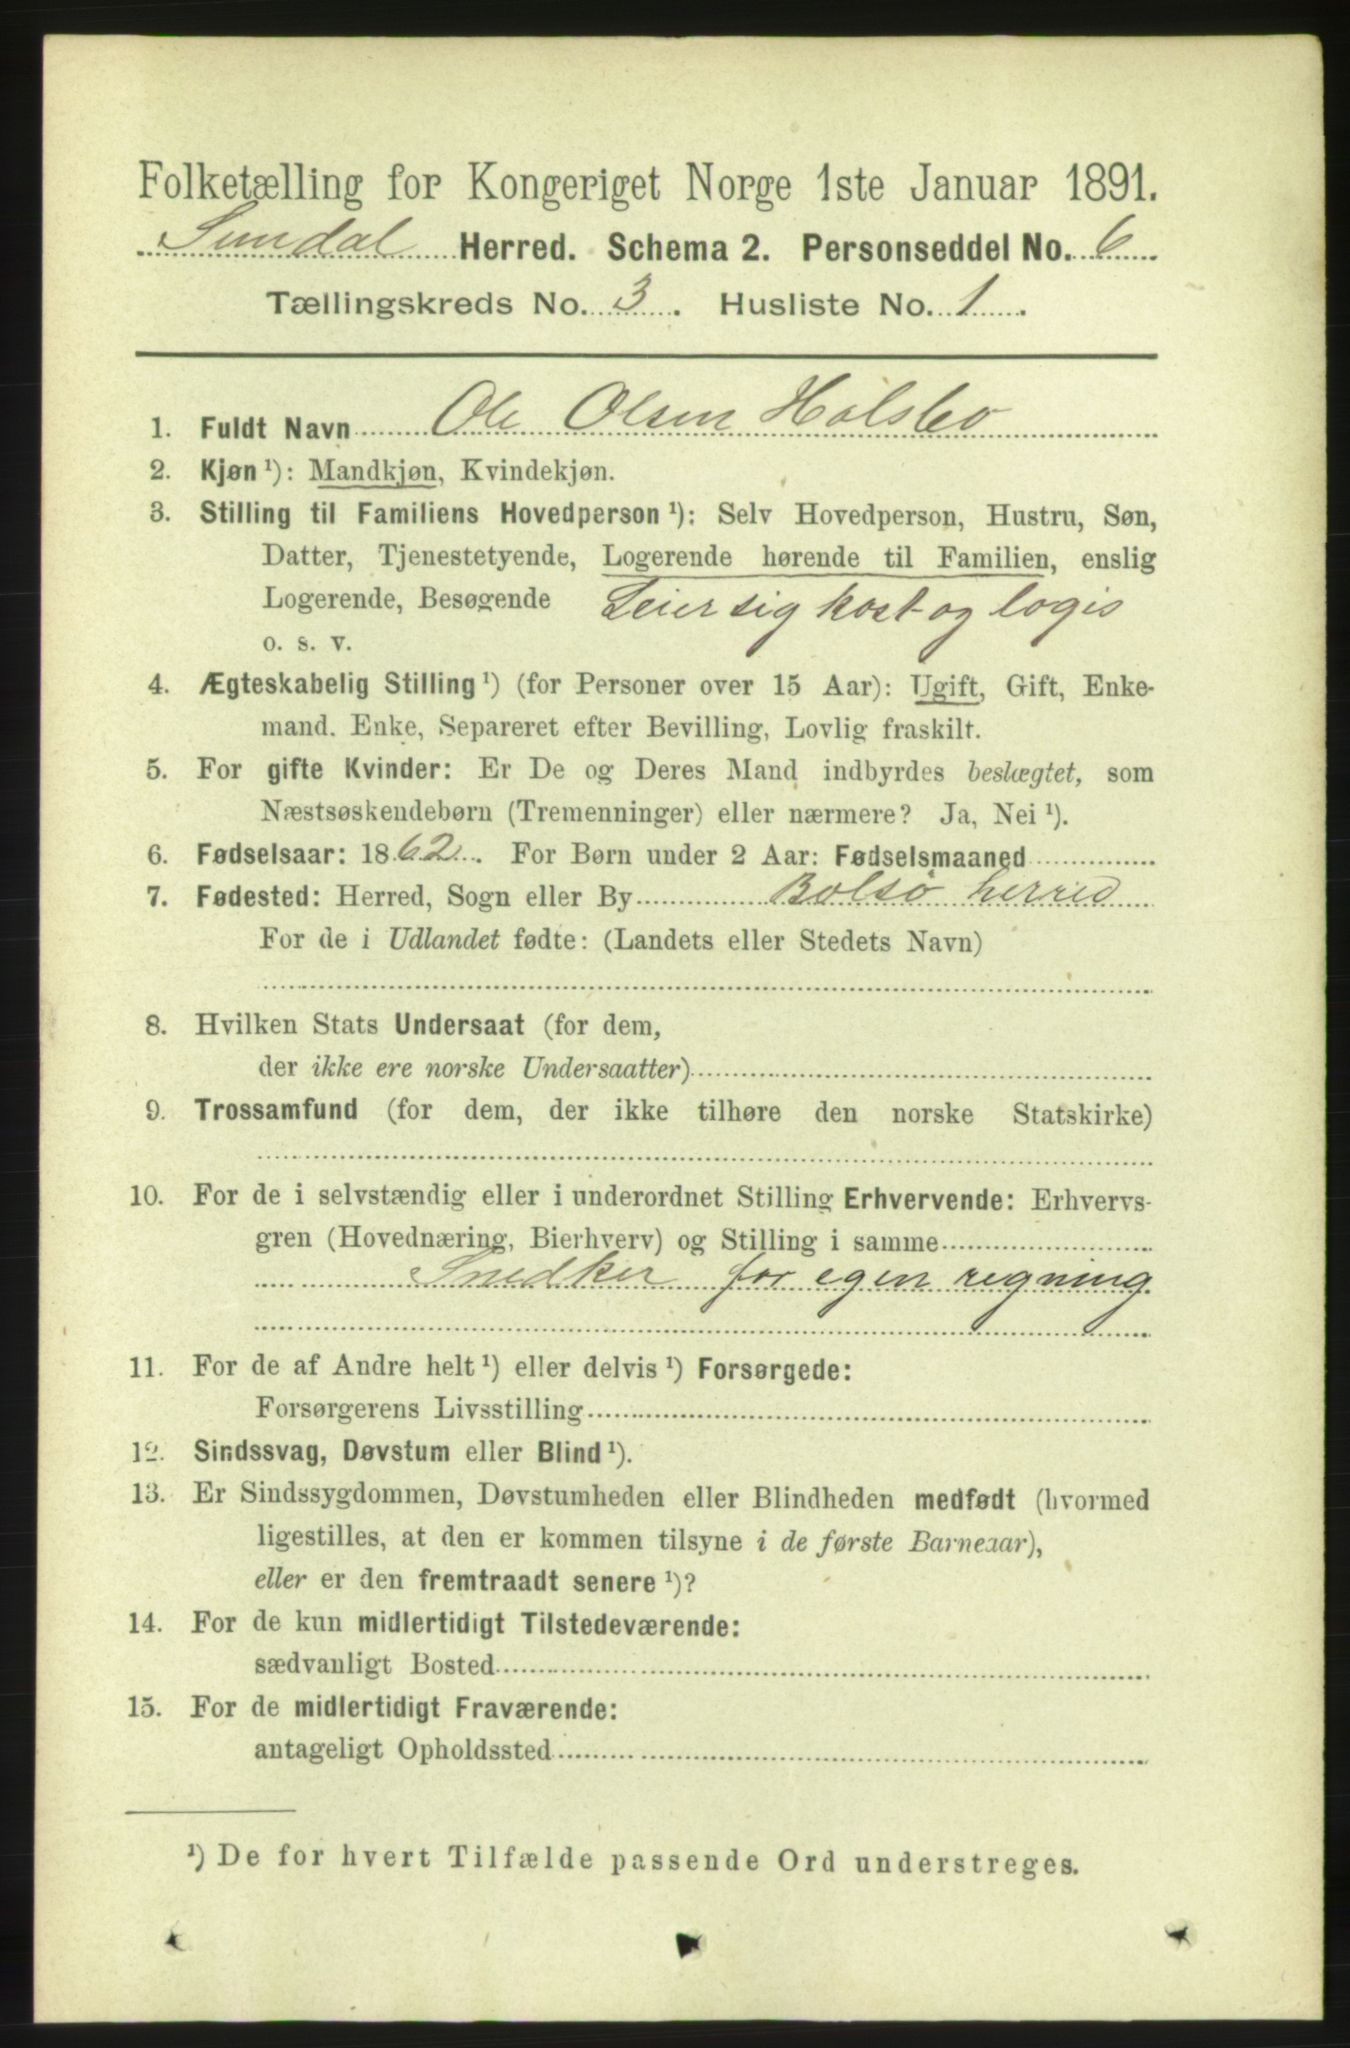 Folketælling for Kongeriget Norge 1ste Januar 1891.
Sundal Herred. Schema 2. Personseddel No. 6
Tællingskreds No. 3. Husliste No. 1
1. Fuldt Navn Ole Olsen Holsbo
2. Kjøn ¹): Mandkjøn, Kvindekjøn.
3. Stilling til Familiens Hovedperson ¹): Selv Hovedperson, Hustru, Søn,
Datter, Tjenestetyende, Logerende hørende til Familien, enslig
Logerende, Besøgende Leier sig kost og logis
o. s. v.
4. Ægteskabelig Stilling ¹) (for Personer over 15 Aar): Ugift, Gift, Enke-
mand. Enke, Separeret efter Bevilling, Lovlig fraskilt.
5. For gifte Kvinder: Er De og Deres Mand indbyrdes beslægtet, som
Næstsøskendebørn (Tremenninger) eller nærmere? Ja, Nei ¹).
6. Fødselsaar: 1862. For Børn under 2 Aar: Fødselsmaaned
7. Fødested: Herred, Sogn eller By Bolsø herred
For de i Udlandet fødte: (Landets eller Stedets Navn)
8. Hvilken Stats Undersaat (for dem,
der ikke ere norske Undersaatter)
9. Trossamfund (for dem, der ikke tilhøre den norske Statskirke)
10. For de i selvstændig eller i underordnet Stilling Erhvervende: Erhvervs-
gren (Hovednæring, Bierhverv) og Stilling i samme
Snedker for egen regning
11. For de af Andre helt ¹) eller delvis ¹) Forsørgede:
Forsørgerens Livsstilling
12. Sindssvag, Døvstum eller Blind ¹).
13. Er Sindssygdommen, Døvstumheden eller Blindheden medfødt (hvormed
ligestilles, at den er kommen tilsyne i de første Barneaar),
eller er den fremtraadt senere ¹)?
14. For de kun midlertidigt Tilstedeværende:
sædvanligt Bosted
15. For de midlertidigt Fraværende:
antageligt Opholdssted
¹) De for hvert Tilfælde passende Ord understreges.